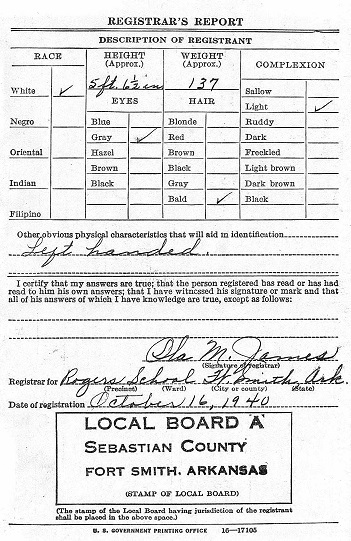 REGISTRAR'S REPORT
DESCRIPTION OF REGISTRANT
RACE
HEIGHT
(Approx.)
WEIGHT
(Approx.)
COMPLEXION
5 ft. 6½ in.
137
White ✓
EYES
HAIR
Sallow
Light ✓
Negro
Blue
Blonde
Ruddy
Gray ✓
Red
Dark
Oriental
Hazel
Brown
Freckled
Brown
Black
Light brown
Indian
Black
Gray
Dark brown
Bald ✓
Black
Filipino
Other obvious physical characteristics that will aid in identification
Left handed.
I certify that my answers are true; that the person registered has read or has had
read to him his own answers; that I have witnessed his signature or mark and that
all of his answers of which I have knowledge are true, except as follows:
Ola M. James
(Signature of registrar)
Registrar for Rogers School Ft. Smith, Ark.
(Precinct) (Ward) (City or county) (State)
Date of registration October 16, 1940
LOCAL BOARD A
SEBASTIAN COUNTY
FORT SMITH, ARKANSAS
(STAMP OF LOCAL BOARD)
(The stamp of the Local Board having jurisdiction of the registrant
shall be placed in the above space.)
U. S. GOVERNMENT PRINTING OFFICE 16—17105